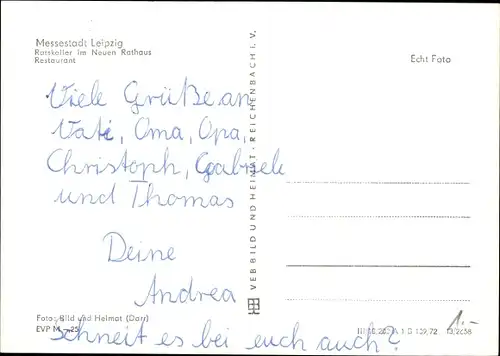 Messestadt Leipzig
Ratskeller im Neuen Rathaus
Restaurant
Echt Foto
Viele Grüße an
Vati, Oma, Opa,
Christoph, Gabriele
und Thomas
Deine
Andrea
Schneit es bei euch auch?
VEB BILD UND HEIMAT · REICHENBACH I. V.
Foto: Bild und Heimat (Darr)
EVP M -,25
1.-